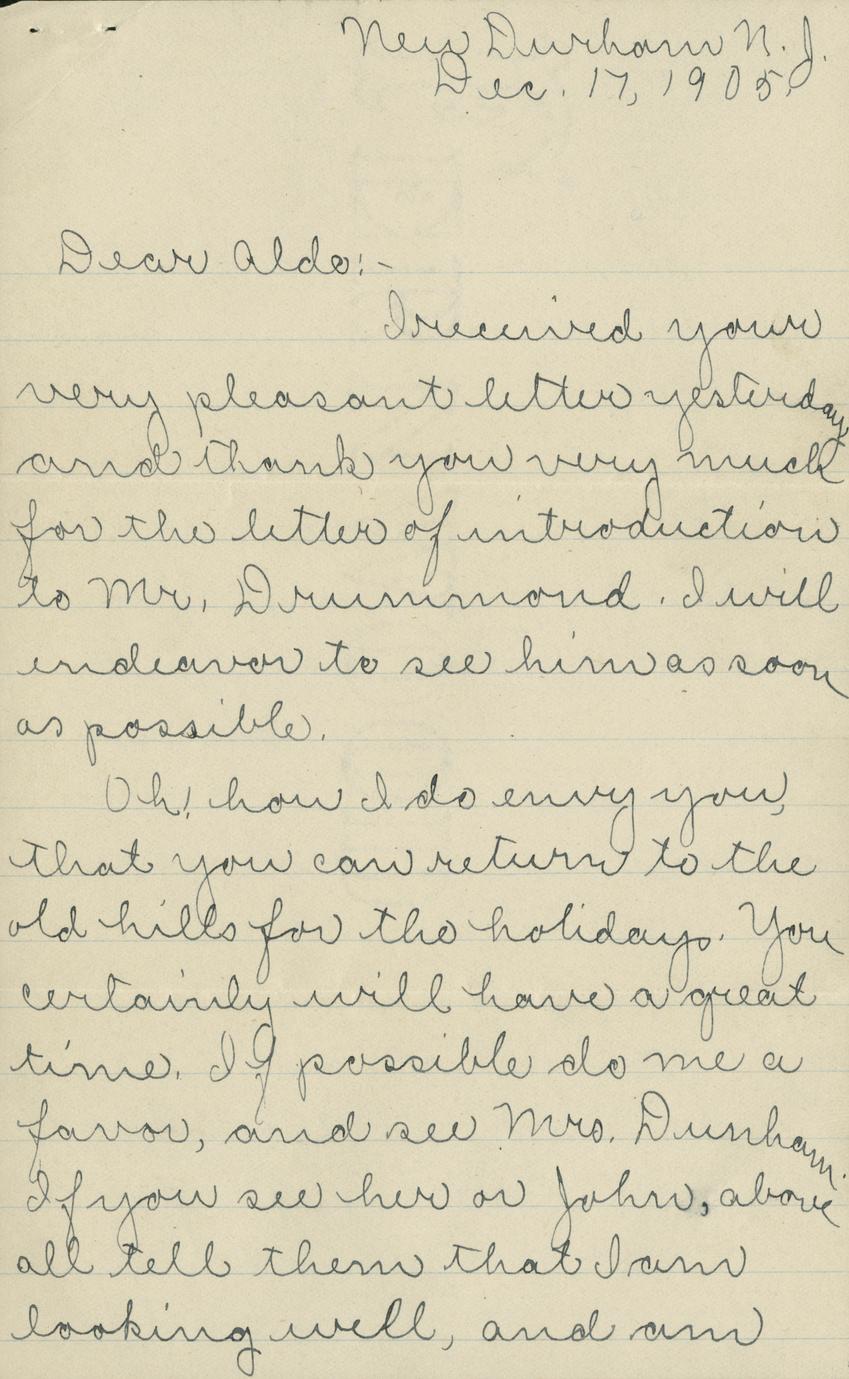 New Durham N. J.
Dec. 17, 1905.
Dear Aldo:-
I received your
very pleasant letter yesterday
and thank you very much
for the letter of introduction
to Mr. Drummond. I will
endeavor to see him as soon
as possible.
Oh! how I do envy you,
that you can return to the
old hills for the holidays. You
certainly will have a great
time. If possible do me a
favor, and see Mrs. Dunham.
If you see her or John, above
all tell them that I am
looking well, and am